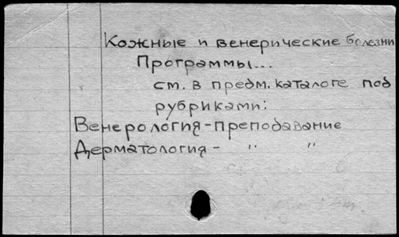 Кожные и венерические болезни
Программы...
см. в предм. каталоге под
рубриками:
Венерология-преподавание
Дерматология- " "